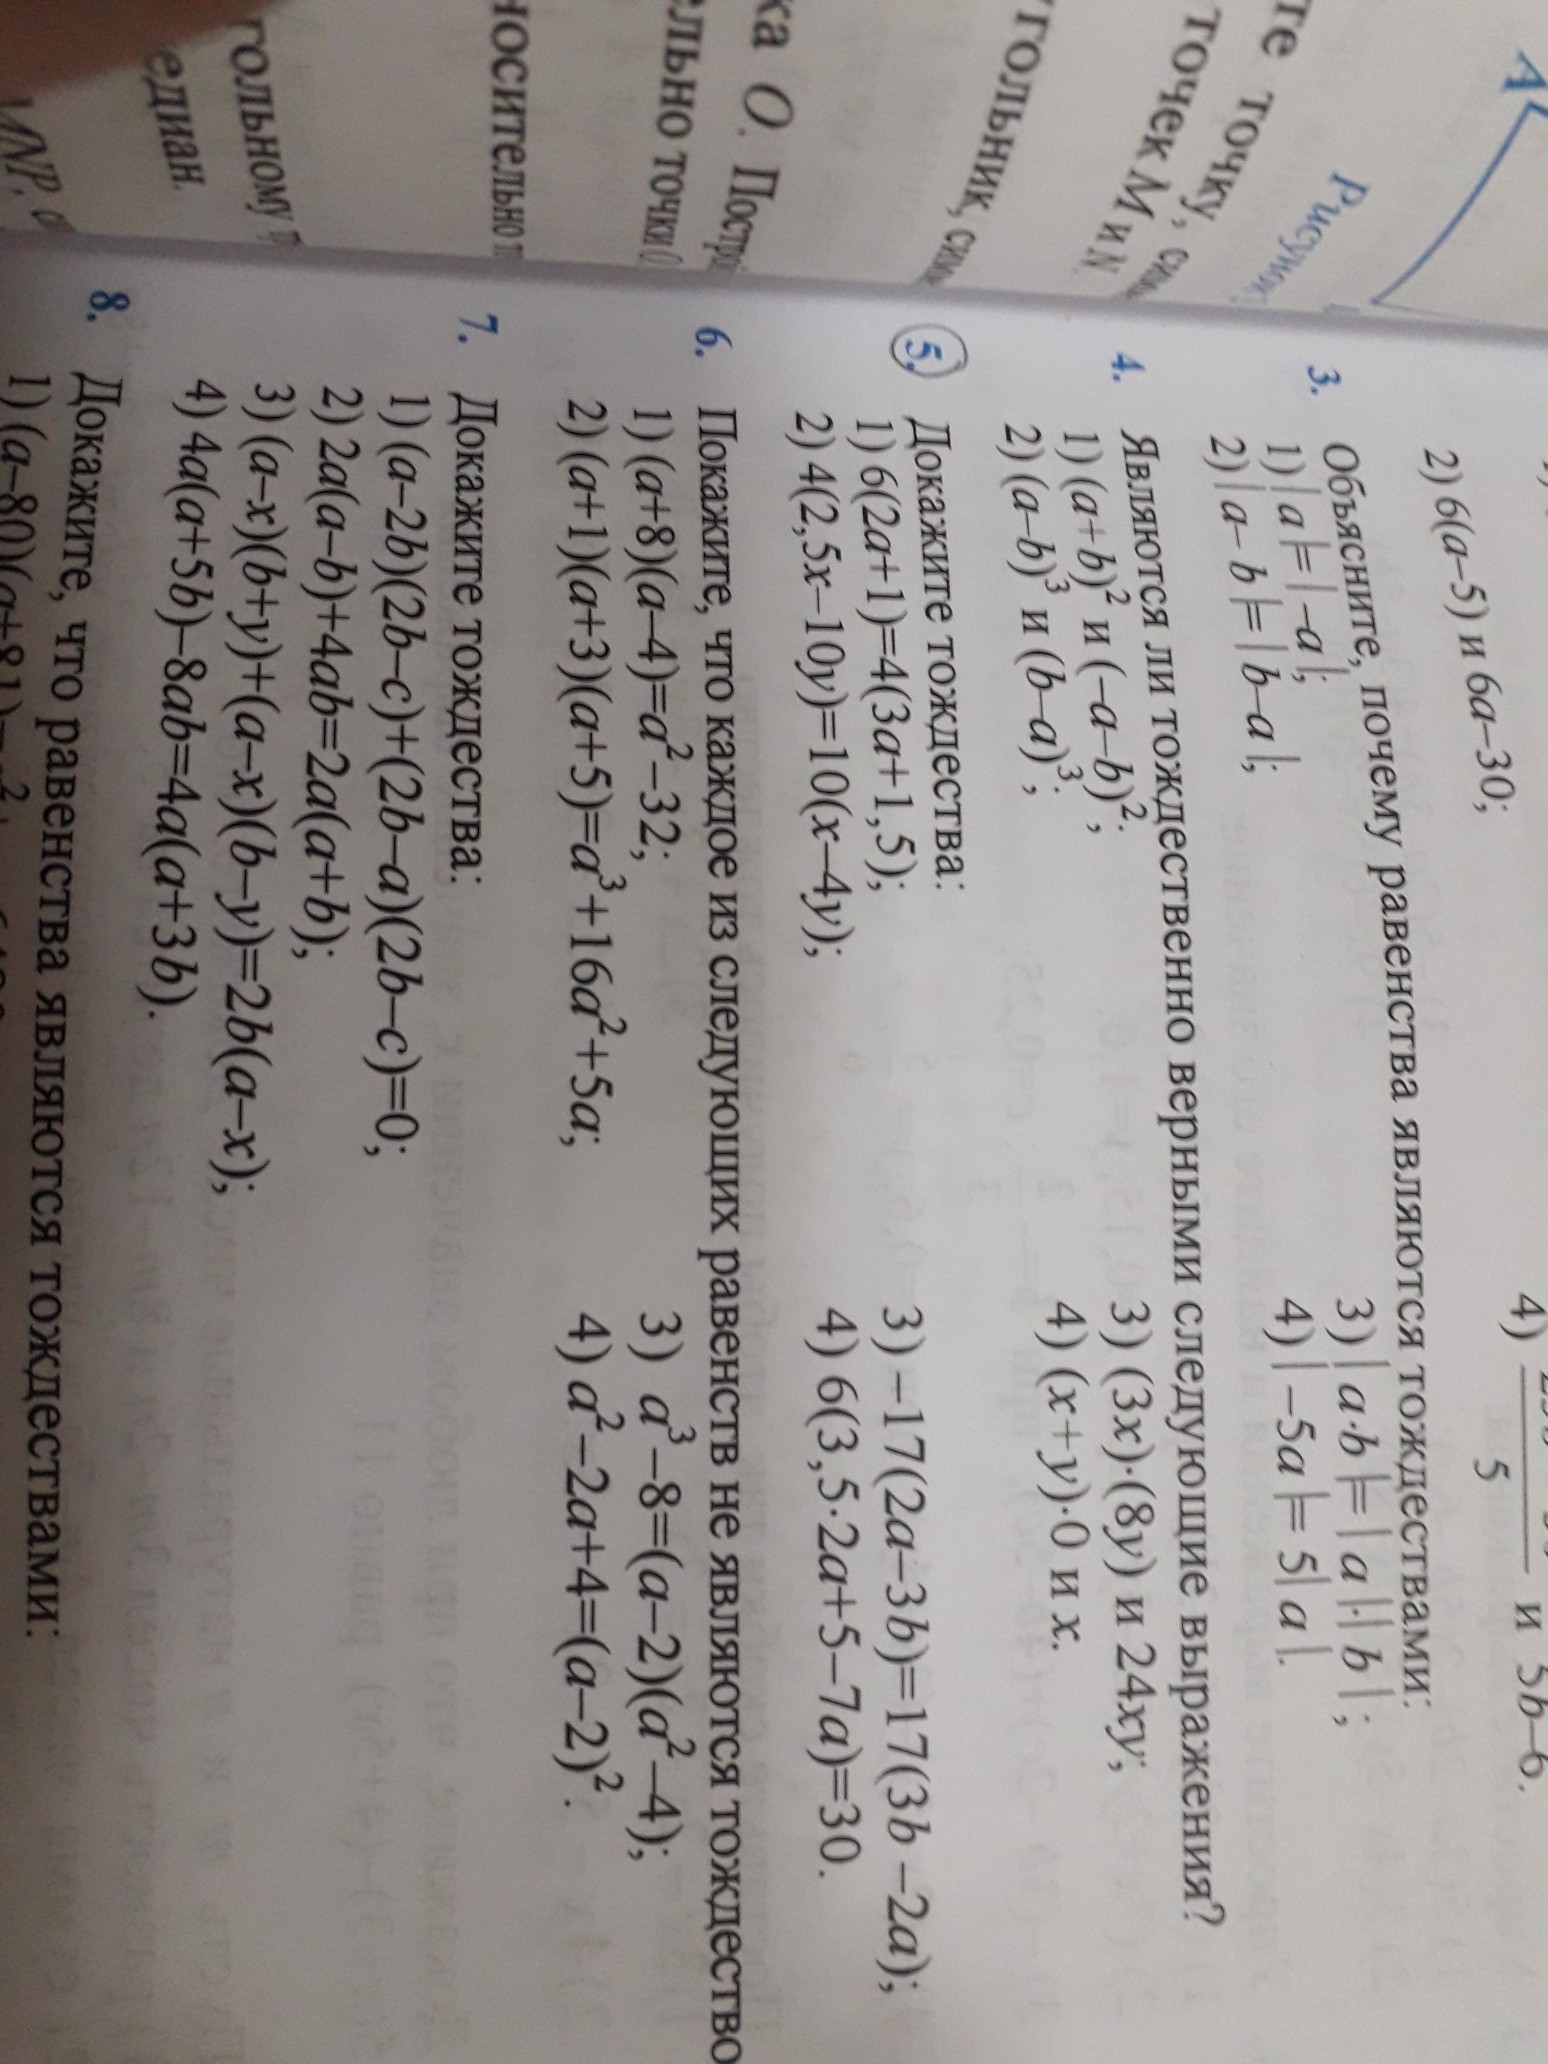 те точку, сим
точек М и N.
угольник, сим
ка O. Постро
ельно точки О
носительно п
гольному
едиан.
MNP,
A
Рисунок
2) 6(a–5) и 6a–30;
4)
5
и 5b–6.
3. Объясните, почему равенства являются тождествами:
1) |a|=|–a|;
3) |a·b|=|a|·|b|;
2) |a–b|=|b–a|;
4) |–5a|=5|a|.
4. Являются ли тождественно верными следующие выражения?
1) (a+b)² и (–a–b)²;
3) (3x)·(8y) и 24xy;
2) (a–b)³ и (b–a)³;
4) (x+y)·0 и x.
5. Докажите тождества:
1) 6(2a+1)=4(3a+1,5);
3) –17(2a–3b)=17(3b –2a);
2) 4(2,5x–10y)=10(x–4y);
4) 6(3,5·2a+5–7a)=30.
6. Покажите, что каждое из следующих равенств не являются тождество
1) (a+8)(a–4)=a²–32;
3) a³–8=(a–2)(a²–4);
2) (a+1)(a+3)(a+5)=a³+16a²+5a;
4) a²–2a+4=(a–2)².
7. Докажите тождества:
1) (a–2b)(2b–c)+(2b–a)(2b–c)=0;
2) 2a(a–b)+4ab=2a(a+b);
3) (a–x)(b+y)+(a–x)(b–y)=2b(a–x);
4) 4a(a+5b)–8ab=4a(a+3b).
8. Докажите, что равенства являются тождествами:
1) (a–80)(a+81)=a²